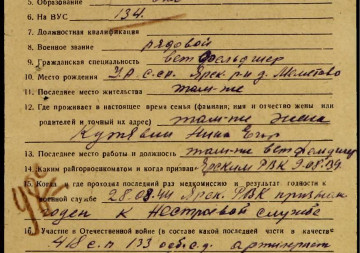 5. Образование
6. На ВУС 134.
7. Должностная квалификация
8. Военное звание рядовой
9. Гражданская специальность ветфельдшер
10. Место рождения УАССР. Ярск р-н д.
11. Последнее место жительства там-же
12. Где проживает в настоящее время семья (фамилия, имя и отчество жены или
родителей и точный их адрес) там-же жена
Нина Егор
13. Последнее место работы и должность там-же ветфельдшер
14. Каким райгорвоенкоматом и когда призван Ярским РВК 9.08.39.
15. Когда проходил последний раз медкомиссию и результат годности к
военной службе 28.08.44 Ярск. РВК признан
годен к нестроевой службе
16. Участие в Отечественной войне (в составе какой последней части и в качестве
418 с.п 133